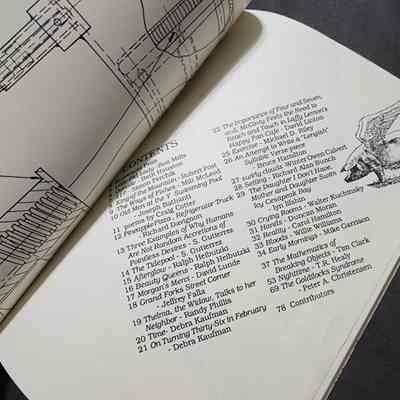 CONTENTS
Mills
- Robert Funk
Mountain - Mill McLeod
If Wishes Were Fishes
10 Old Men at the Y Swimming Pool
- Joseph Bathanti
11 poems by Craig Cotter
12 Pewapplepinanna Refrigerator Truck
- Richard Downing
13 Three Examples of Why Humans
Are Not Random Accretions of
Pointless Desires - S. Gutierrez
14 The Tidepool - S. Gutierrez
15 Afterglow - Ralph Heibutzki
16 Beauty Queens - Ralph Heibutzki
17 Morgan's Merci - David Lunde
18 Grand Forks Street Corner
- Jeffrey Falla
19 Thelma, the Widow, Talks to her
Neighbor - Randy Phillis
20 Time - Debra Kaufman
21 On Turning Thirty-Six in February
- Debra Kaufman
22 The Importance of Four and Seven,
and, McGinty Feels the Need to
Reach and Touch in Laffy Lemon's
Happy Pan Cafe - David Upton
25 Exercise - Michael D. Riley
26 An Attempt to Write a "Longish"
Syllabic Verse piece
- Bruce Hamilton
27 surly clouds - Winter Owen Calvert
28 Setting - Richard Alan Bunch
29 The Daughter I Don't Have,
Mother and Daughter Suite
30 Crying Rooms - Walter Kuchinsky
31 Hands - Duncan Moran
32 Reality - Carol Hamilton
33 Bloods - Willie Williams
34 Early Mornings - Mike Garrison
37 The Mathematics of
Breaking Objects - Tim Clark
53 Nighttime - T.R. Healy
69 The Goldilocks Syndrome
- Peter A. Christensen
78 Contributors